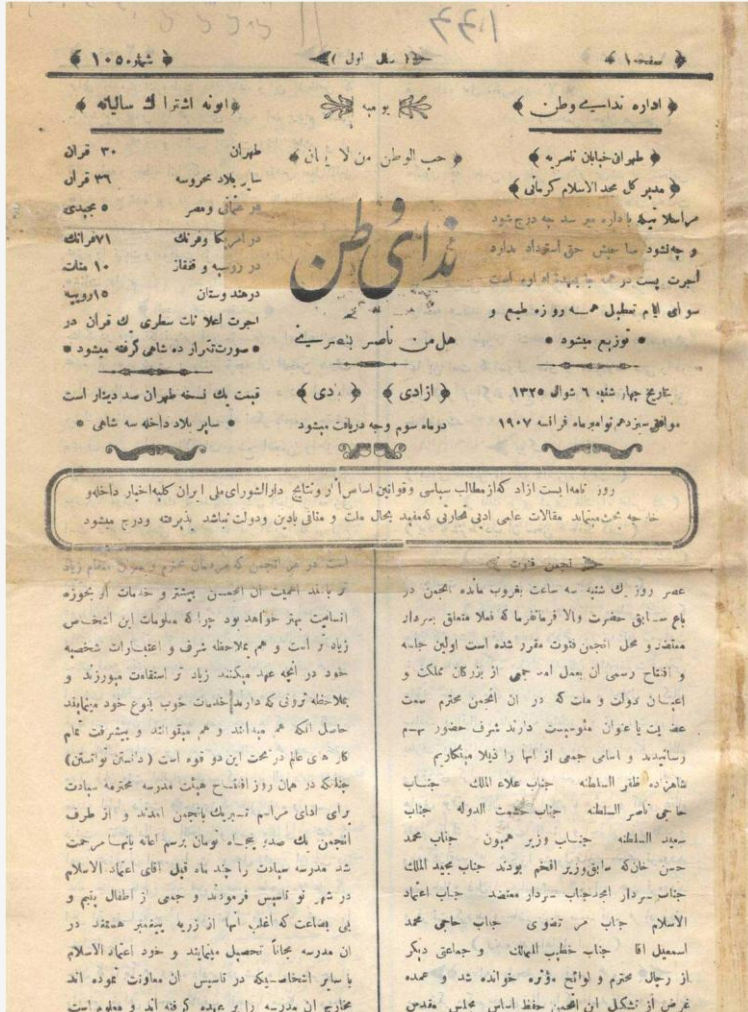 صفحه ۱
( سال اول )
شماره ۱۰۵۰
اداره ندای وطن
طهران خیابان ناصریه
مدیر کل مجد الاسلام کرمانی
مراسلاتیکه باداره میرسد چه درج شود
و چه نشود صاحبش حق استرداد ندارد
اجرت پست در همه جا بعهده اداره است
سوای ایام تعطیل همه روزه طبع و
توزیع میشود
بتاریخ چهار شنبه ۶ شوال ۱۳۲۵
موافق سیزدهم نوامبر ماه فرانسه ۱۹۰۷
یومیه
حب الوطن من الایمان
ندای وطن
هل من ناصر ینصرنی
( ازادی )
دوماه سوم وجه دریافت میشود
ابونه اشتراك سالیانه
طهران ۳۰ قران
سایر بلاد محروسه ۳۶ قران
در عثمانی ومصر ۵ مجیدی
در امریکا وفرنك ۷۱فرانك
در روسیه و قفقاز ۱۰ منات
درهندوستان ۱۵روپیه
اجرت اعلانات سطری یك قران در
صورت تکرار ده شاهی گرفته میشود
قیمت یك نسخه طهران صد دینار است
سایر بلاد داخله سه شاهی
روز نامه ایست ازاد که از مطالب سیاسی وقوانین اساسی ونتایج دارالشورای ملی ایران کلیه اخبار داخله و
خارجه بحث مینماید مقالات علمی ادبی تجارتی که مفید بحال ملت و منافی بادین ودولت نباشد پذیرفته ودرج میشود
انجمن فتوت
عصر روز یك شنبه سه ساعت بغروب مانده انجمن در
باغ سابق حضرت والا فرمانفرما که فعلا متعلق بسردار
معتضد و محل انجمن فتوت مقرر شده است اولین جلسه
و افتتاح رسمی آن بعمل امد جمعی از بزرگان مملکت و
اعیان دولت و ملت که در ان انجمن محترم سمت
عضویت یا عنوان دارند شرف حضور بهم
رسانیدند و اسامی جمعی از انها را ذیلا مینگاریم
شاهزاده ظفر السلطنه جناب علاء الملك جناب
حاجی ناصر السلطنه جناب حشمت الدوله جناب
سعید السلطنه جناب وزیر همیون جناب محمد
حسن خان که سابق وزیر افخم بودند جناب مجید الملك
جناب سردار امجد جناب سردار معتضد جناب اعتماد
الاسلام جناب مرتضوی جناب حاجی محمد
اسمعیل اقا جناب خطیب الممالك و جماعتی دیگر
از رجال محترم و لوائح مؤثره خوانده شد و عمده
غرض از تشکیل این انجمن حفظ اساس مجلس مقدس
است در هر انجمن که مردمان محترم و زیاد
تر باشد اهمیت ان انجمن بیشتر و خدمات او بحوزه
انسانیت بهتر خواهد بود چرا که معلومات این اشخاص
زیاد تر است و هم بملاحظه شرف و اعتبارات شخصیه
خود در انچه عهد میکنند زیاد تر استقامت میورزند و
بملاحظه ثروتی که دارند خدمات خوب بنوع خود مینمایند
حاصل انکه هم میدانند و هم میتوانند و پیشرفت تمام
کار های عالم در تحت این دو قوه است ( دانستن توانستن )
چنانکه در همان روز افتتاح هیئت مدرسه محترمه سیادت
برای ادای مراسم تبریك بانجمن امدند و از طرف
انجمن یك صد و پنجاه تومان برسم اعانه بانها مرحمت
شد مدرسه سیادت را چند ماه قبل اقای اعتماد الاسلام
در شهر نو تاسیس فرمودند و جمعی از اطفال یتیم و
بی بضاعت که اغلب انها از زریه پیغمبر هستند در
ان مدرسه مجاناً تحصیل مینمایند و خود اعتماد الاسلام
با سایر اشخاصیکه در تاسیس ان معاونت نموده اند
مخارج ان مدرسه را بر عهده گرفته اند و معلوم است